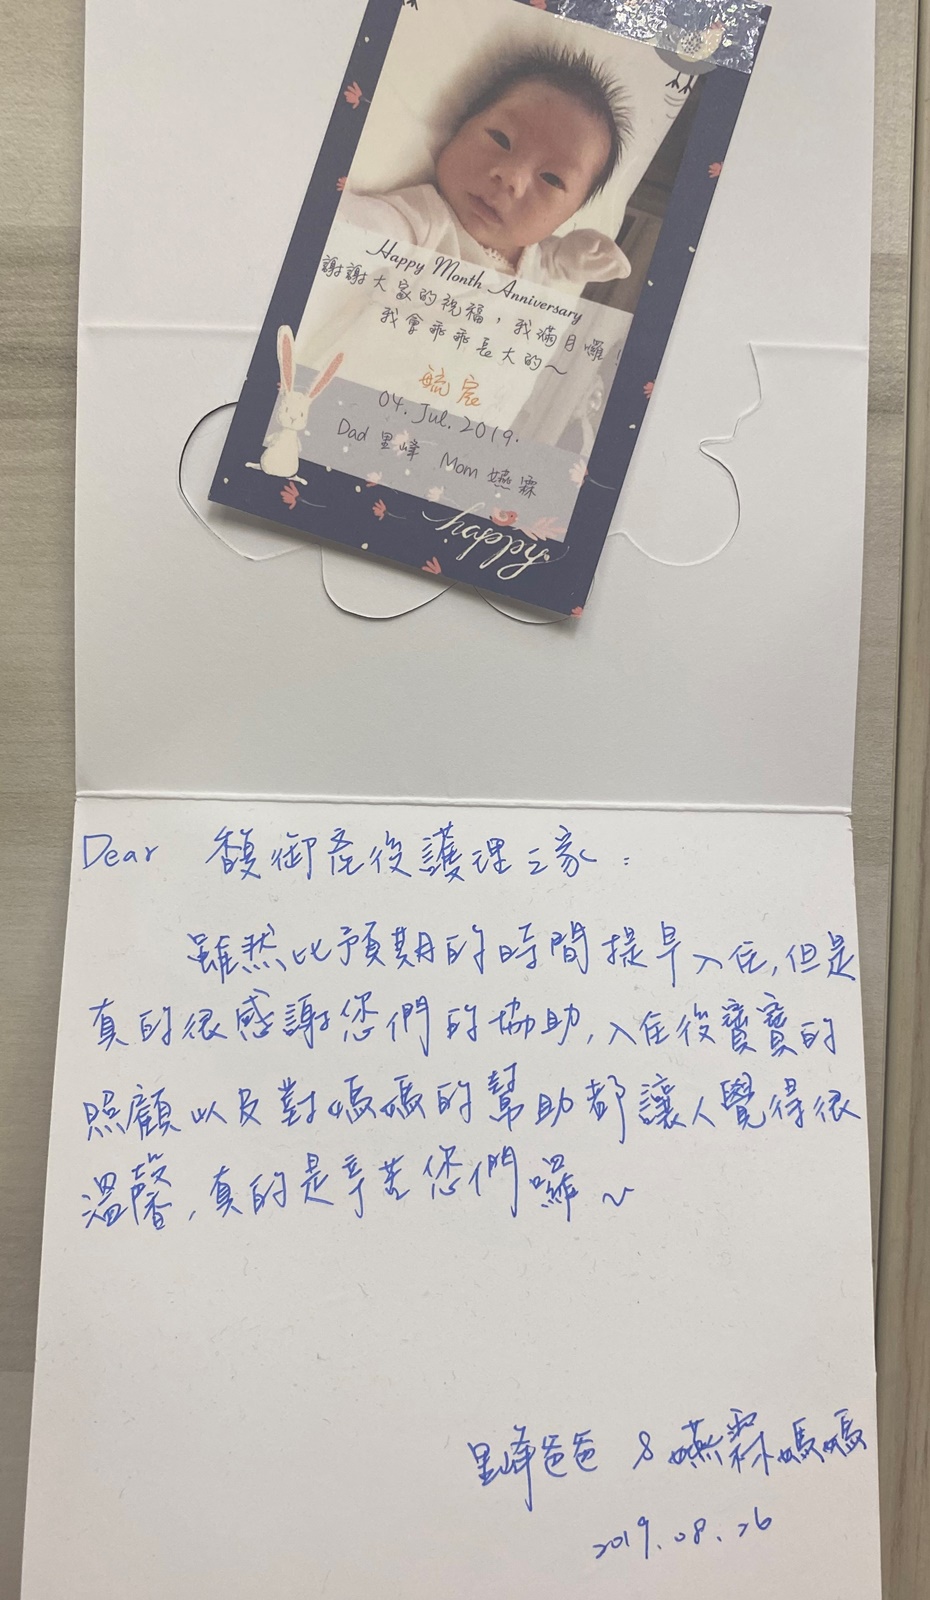 Happy Month Anniversary
謝謝大家的祝福，我滿月囉！
我會乖乖長大的～
毓宸
04. Jul. 2019.
Dad 里峰 Mom 嬿霖
happy
Dear 馥御產後護理之家：
雖然比預期的時間提早入住,但是
真的很感謝您們的協助,入住後寶寶的
照顧以及對媽媽的幫助都讓人覺得很
溫馨,真的是辛苦您們囉~
里峰爸爸 & 嬿霖媽媽
2019.08.26